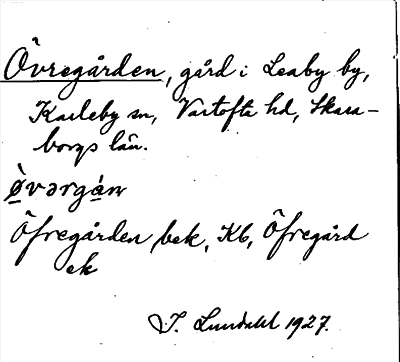 Övregården, gård i Leaby by,
Karleby sn, Vartofta hd, Skara-
borgs län.
øvərgán
Öfregården bek, Kb, Öfregård
ek
I. Lundahl 1927.